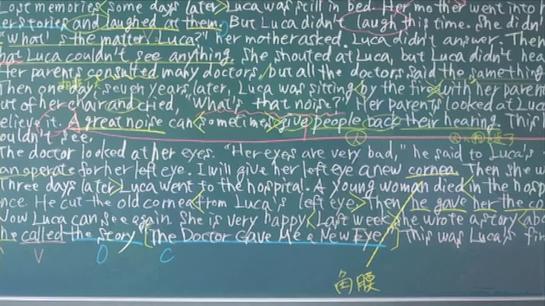 lost memories some days later Luca was still in bed. Her mother went into
her stories and laughed at them. But Luca didn't laugh this time. She didn'
"What's the matter, Luca?" her mother asked. Luca didn't answer. Then
hat Luca couldn't see anything. She shouted at Luca, but Luca didn't hea
Her parents many doctors, but all the doctors said the something
Then one day seven years later, Luca was sitting by the fire with her paren
out of her chair and cried, "What's that noise?" Her parents looked at Luca
elieve A great noise can sometimes give people back their hearing. This
ouldn't see.
The doctor looked at her eyes. "Her eyes are very bad," he said to Luca's
an operate for her left eye. I will give her left eye a new cornea. Then she w
Three days later Luca went to the hospital. A young woman died in the hosp
nce. He cut the old cornea from Luca's left eye. Then he gave her the co
Now Luca can see again. She is very happy. Last week she wrote a story abo
he called the story [The Doctor Gave Me a New Eye.] This was Luca's fir
V O C
角膜